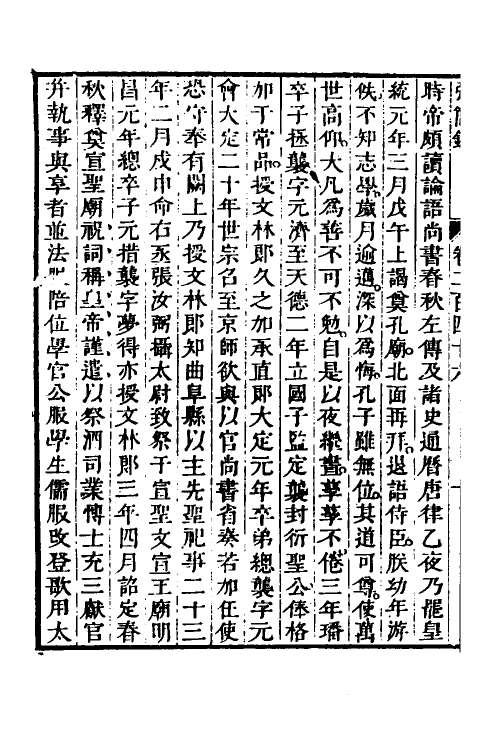 卷二百四十六
時帝頗讀論語尚書春秋左傳及諸史通曆唐律乙夜乃罷皇
統元年三月戊午上謁奠孔廟北面再拜退語侍臣朕幼年游
佚不知志學歲月逾邁深以爲悔孔子雖無位其道可尊使萬
世高仰大凡爲善不可不勉自是以夜繼晝孳孳不倦三年璠
卒子拯襲字元濟至天德二年立國子監定襲封衍聖公俸格
加于常品授文林郎久之加承直郎大定元年卒弟總襲字元
會大定二十年世宗召至京師欲與以官尚書省奏若加任使
恐守奉有闕上乃授文林郎知曲阜縣以主先聖祀事二十三
年二月戊申命右丞張汝弼攝太尉致祭于宣聖文宣王廟明
昌元年總卒子元措襲字夢得亦授文林郎三年四月詔定春
秋釋奠宣聖廟祝詞稱皇帝謹遣以祭酒司業博士充三獻官
幷執事與享者並法服陪位學官公服學生儒服改登歌用太